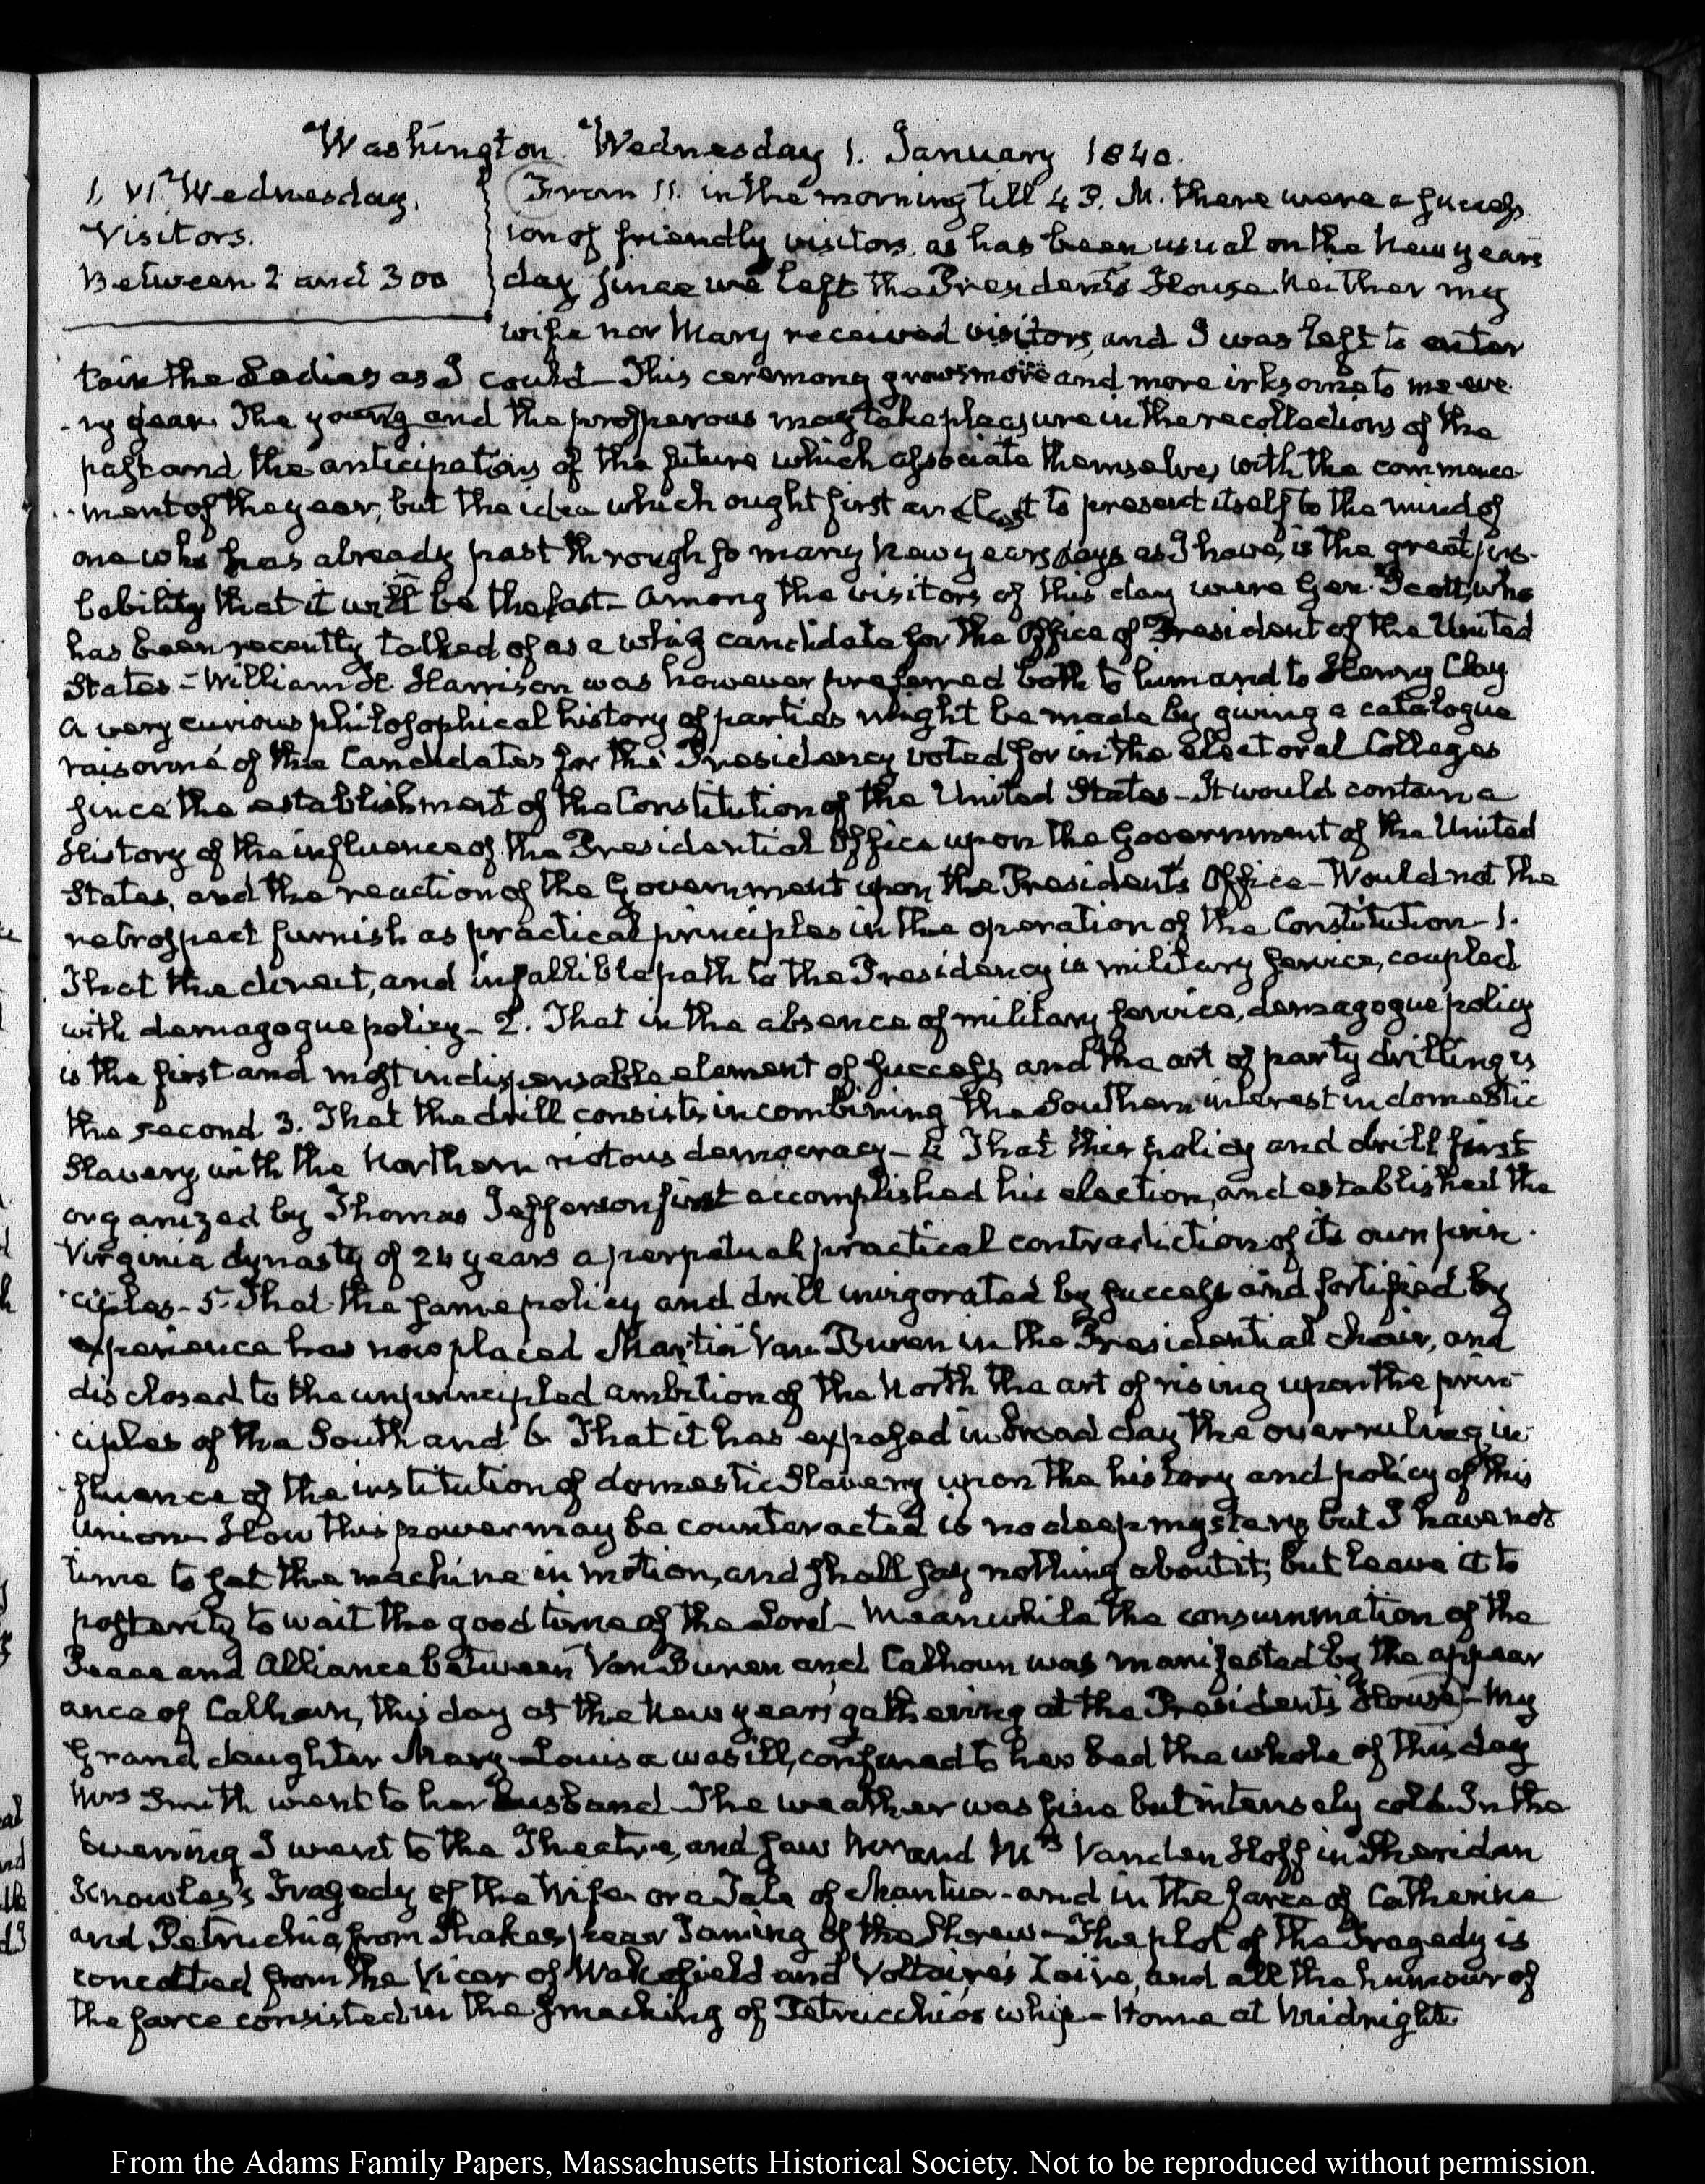 Washington Wednesday 1. January 1840.
1. VI. Wednesday.
Visitors.
Between 2 and 300
From 11. in the morning till 4 P. M. there were a success
ion of friendly visitors, as has been usual on the New years
day since we left the President's House. Neither my
wife nor Mary received visitors, and I was left to enter
tain the Ladies as I could— This ceremony grows more and more irksome to me eve
-ry year. The young and the prosperous may take pleasure in the recollections of the
past and the anticipations of the future which associate themselves with the commence
-ment of the year, but the idea which ought first and last to present itself to the mind of
one who has already past through so many New years days as I have, is the great pro-
bability that it will be the last— Among the visitors of this day were Gen. Scott, who
has been recently talked of as a whig candidate for the Office of President of the United
States— William H. Harrison was however preferred both to him and to Henry Clay
A very curious philosophical history of parties might be made by giving a catalogue
raisonné of the Candidates for the Presidency voted for in the electoral Colleges
since the establishment of the Constitution of the United States— It would contain a
History of the influence of the Presidential Office upon the Government of the United
States, and the reaction of the Government upon the President's Office— Would not the
retrospect furnish as practical principles in the operation of the Constitution— 1.
That the direct, and infallible path to the Presidency is military service, coupled
with demagogue policy— 2. That in the absence of military service, demagogue policy
is the first and most indispensable element of success, and the art of party drilling is
the second. 3. That the drill consists in combining the Southern interest in domestic
Slavery with the Northern riotous democracy— 4 That this policy and drill first
organized by Thomas Jefferson first accomplished his election, and established the
Virginia dynasty of 24 years a perpetual practical contradiction of its own prin-
-ciples— 5. That the same policy and drill invigorated by success and fortified by
experience has now placed Martin Van Buren in the Presidential chair, and
disclosed to the unprincipled ambition of the North the art of rising upon the prin-
-ciples of the South and 6 That it has exposed in broad day the overruling in-
-fluence of the institution of domestic Slavery upon the history and policy of this
Union— How this power may be counteracted is no deep mystery but I have not
time to set the machine in motion, and shall say nothing about it; but leave it to
posterity to wait the good time of the Lord— Meanwhile the consummation of the
Peace and Alliance between Van Buren and Calhoun was manifested by the appear
ance of Calhoun, this day at the New years gathering at the President's House— My
Grand daughter Mary-Louisa was ill, confined to her bed the whole of this day
Mrs Smith went to her husband— The weather was fine but intensely cold. In the
Evening I went to the Theatre, and saw Mr and Mrs Vanden Hoff in Sheridan
Knowles's Tragedy of the Wife or a Tale of Mantua— and in the farce of Catherine
and Petruchio from Shakespear Taming of the Shrew— The plot of the Tragedy is
concocted from the Vicar of Wakefield and Voltaire's Zaire, and all the humour of
the farce consisted in the smacking of Petrucchio's whip— Home at Midnight.
From the Adams Family Papers, Massachusetts Historical Society. Not to be reproduced without permission.